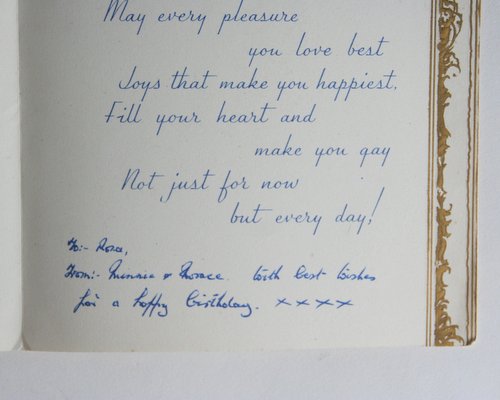 May every pleasure
you love best
Joys that make you happiest,
Fill your heart and
make you gay
Not just for now
but every day!
To:- Rose,
From:- Minnie & Horace. With best wishes
for a happy birthday. xxxx